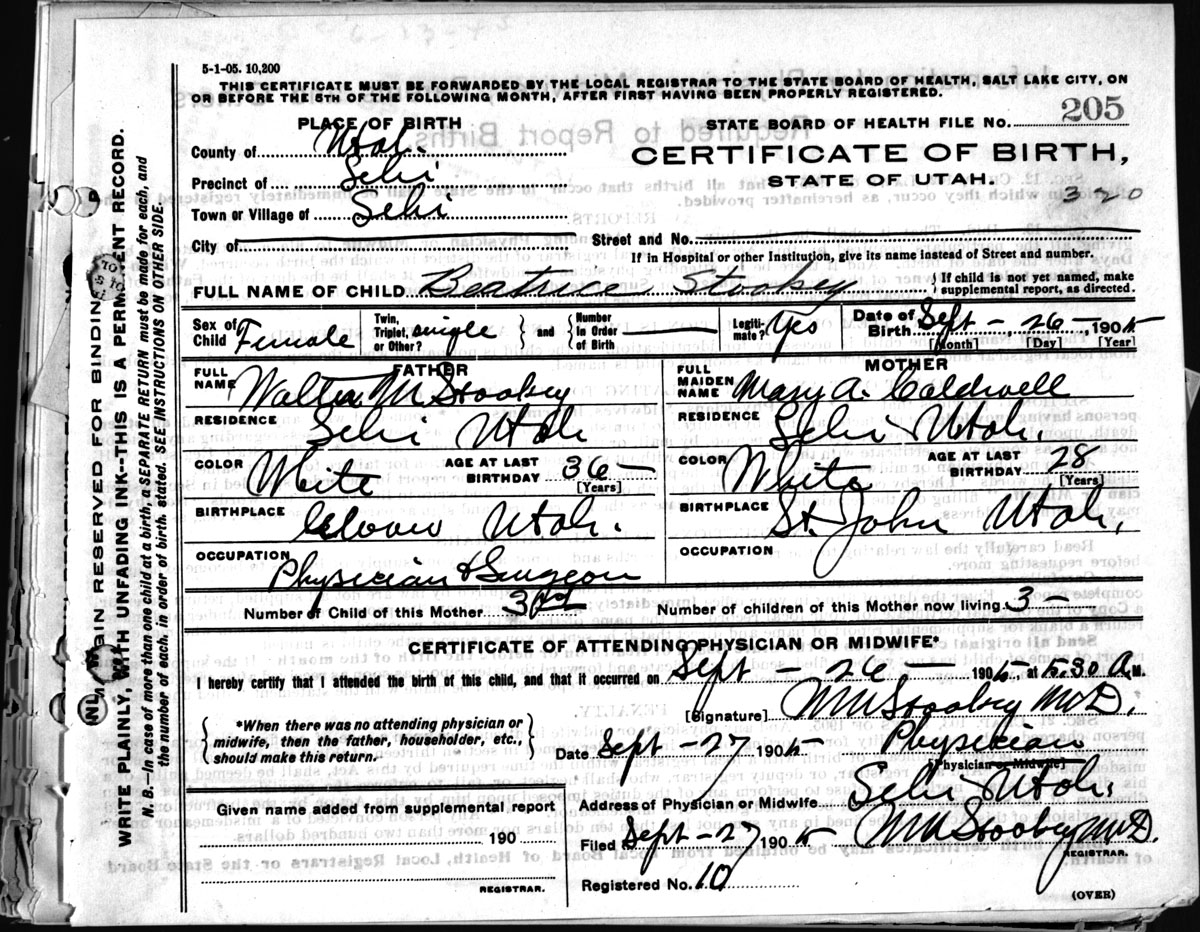 5-1-05. 10,200
THIS CERTIFICATE MUST BE FORWARDED BY THE LOCAL REGISTRAR TO THE STATE BOARD OF HEALTH, SALT LAKE CITY, ON
OR BEFORE THE 5TH OF THE FOLLOWING MONTH, AFTER FIRST HAVING BEEN PROPERLY REGISTERED.
PLACE OF BIRTH
STATE BOARD OF HEALTH FILE NO. 205
County of Utah.
CERTIFICATE OF BIRTH,
Precinct of Lehi
STATE OF UTAH.
320
Town or Village of Lehi
City of
Street and No.
If in Hospital or other Institution, give its name instead of Street and number.
FULL NAME OF CHILD Beatrice Stookey
If child is not yet named, make supplemental report, as directed.
Sex of Child Female
Twin, Triplet, or Other? single
and
Number in Order of Birth
Legitimate? Yes
Date of Birth Sept - 26 -, 1905
[Month] [Day] [Year]
FATHER
MOTHER
FULL NAME Walter M Stookey
FULL MAIDEN NAME Mary A. Caldwell
RESIDENCE Lehi Utah
RESIDENCE Lehi Utah.
COLOR White
AGE AT LAST BIRTHDAY 36 -
[Years]
COLOR White
AGE AT LAST BIRTHDAY 28
[Years]
BIRTHPLACE Clover Utah.
BIRTHPLACE St. John Utah.
OCCUPATION Physician & Surgeon
OCCUPATION
Number of Child of this Mother 3rd
Number of children of this Mother now living. 3 -
CERTIFICATE OF ATTENDING PHYSICIAN OR MIDWIFE*
I hereby certify that I attended the birth of this child, and that it occurred on Sept - 26 - 1905, at 5.30 A.M.
[Signature] W M Stookey M.D.
*When there was no attending physician or midwife, then the father, householder, etc., should make this return.
Date Sept - 27 1905 Physician
[Physician or Midwife]
Given name added from supplemental report
190
REGISTRAR.
Address of Physician or Midwife Lehi Utah.
Filed Sept - 27 1905 W M Stookey M.D.
REGISTRAR.
Registered No. 10
(OVER)
MARGIN RESERVED FOR BINDING
WRITE PLAINLY, WITH UNFADING INK--THIS IS A PERMANENT RECORD.
N. B.--In case of more than one child at a birth, a SEPARATE RETURN must be made for each, and
the number of each, in order of birth, stated. SEE INSTRUCTIONS ON OTHER SIDE.